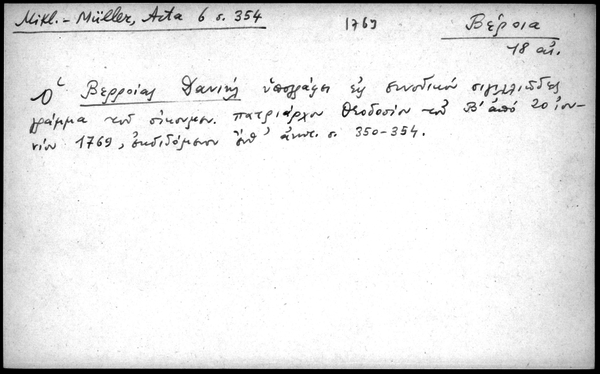 Mikl.-Müller, Acta 6 σ. 354
1769
Βέροια
18 αἰ.
Ὁ Βερροίας Δανιὴλ ὑπογράφει εἰς συνοδικὸν σιγιλλιῶδες
γράμμα τοῦ οἰκουμεν. πατριάρχου Θεοδοσίου τοῦ Β΄ ἀπὸ 20 ἰου-
νίου 1769, ἐκδιδόμενον ἔνθ' ἀνωτ. σ. 350-354.